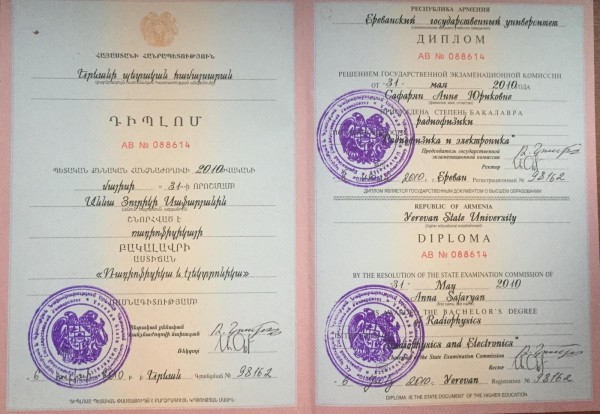 ՀԱՅԱՍՏԱՆԻ ՀԱՆՐԱՊԵՏՈՒԹՅՈՒՆ
Երևանի պետական համալսարան
ԴԻՊԼՈՄ
АВ № 088614
ՊԵՏԱԿԱՆ ՔՆՆԱԿԱՆ ՀԱՆՁՆԱԺՈՂՈՎԻ 2010 ԹՎԱԿԱՆԻ
մայիսի 31-Ի ՈՐՈՇՄԱՄԲ
Աննա Յուրիկի Սաֆարյանին
ՇՆՈՐՀՎԱԾ Է
ռադիոֆիզիկայի
ԲԱԿԱԼԱՎՐԻ
ԱՍՏԻՃԱՆ
«Ռադիոֆիզիկա և էլեկտրոնիկա»
ՄԱՍՆԱԳԻՏՈՒԹՅԱՄԲ
Պետական քննական
հանձնաժողովի նախագահ
Ռեկտոր
6 2010 թ. ք. Երևան Գրանցված № 98162
ԴԻՊԼՈՄԸ ՊԵՏԱԿԱՆ ՓԱՍՏԱԹՈՒՂԹ Է ԲԱՐՁՐԱԳՈՒՅՆ ԿՐԹՈՒԹՅԱՆ ՄԱՍԻՆ
РЕСПУБЛИКА АРМЕНИЯ
Ереванский государственный университет
ДИПЛОМ
АВ № 088614
РЕШЕНИЕМ ГОСУДАРСТВЕННОЙ ЭКЗАМЕНАЦИОННОЙ КОМИССИИ
ОТ 31 мая 2010 ГОДА
Сафарян Анне Юриковне
ПРИСУЖДЕНА СТЕПЕНЬ БАКАЛАВРА
радиофизики
"Радиофизика и электроника"
Председатель государственной
экзаменационной комиссии
Ректор
2010. Ереван Регистрационный № 98162
ДИПЛОМ ЯВЛЯЕТСЯ ГОСУДАРСТВЕННЫМ ДОКУМЕНТОМ О ВЫСШЕМ ОБРАЗОВАНИИ
REPUBLIC OF ARMENIA
Yerevan State University
(higher educational establishment)
DIPLOMA
АВ № 088614
BY THE RESOLUTION OF THE STATE EXAMINATION COMMISSION OF
31 May 2010
Anna Safaryan
THE BACHELOR'S DEGREE
Radiophysics
Radiophysics and Electronics
of the State Examination Commission
Rector
6 2010. Yerevan Registration № 98162
DIPLOMA IS THE STATE DOCUMENT OF THE HIGHER EDUCATION